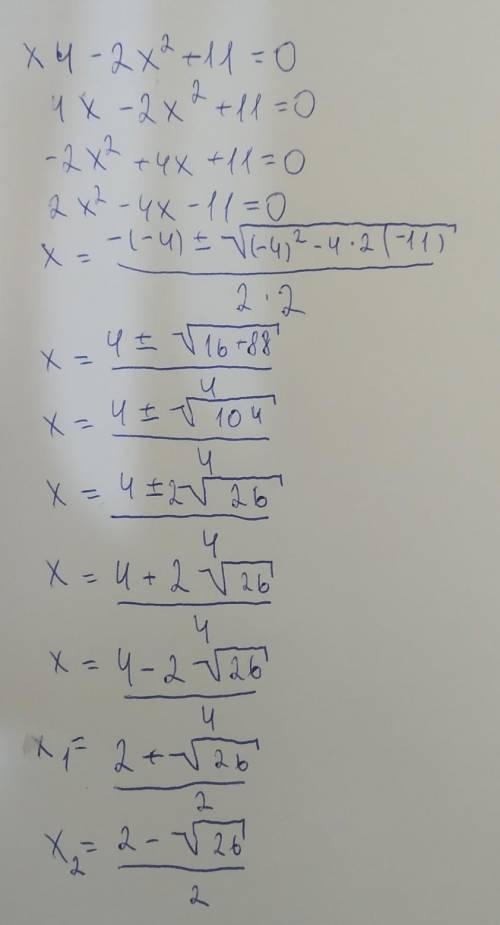 x4 - 2x² + 11 = 0
4x - 2x² + 11 = 0
-2x² + 4x + 11 = 0
2x² - 4x - 11 = 0
x = -(-4) ± √((-4)² - 4·2(-11)) / 2·2
x = 4 ± √(16+88) / 4
x = 4 ± √104 / 4
x = 4 ± 2√26 / 4
x = 4 + 2√26 / 4
x = 4 - 2√26 / 4
x₁ = 2 + √26 / 2
x₂ = 2 - √26 / 2